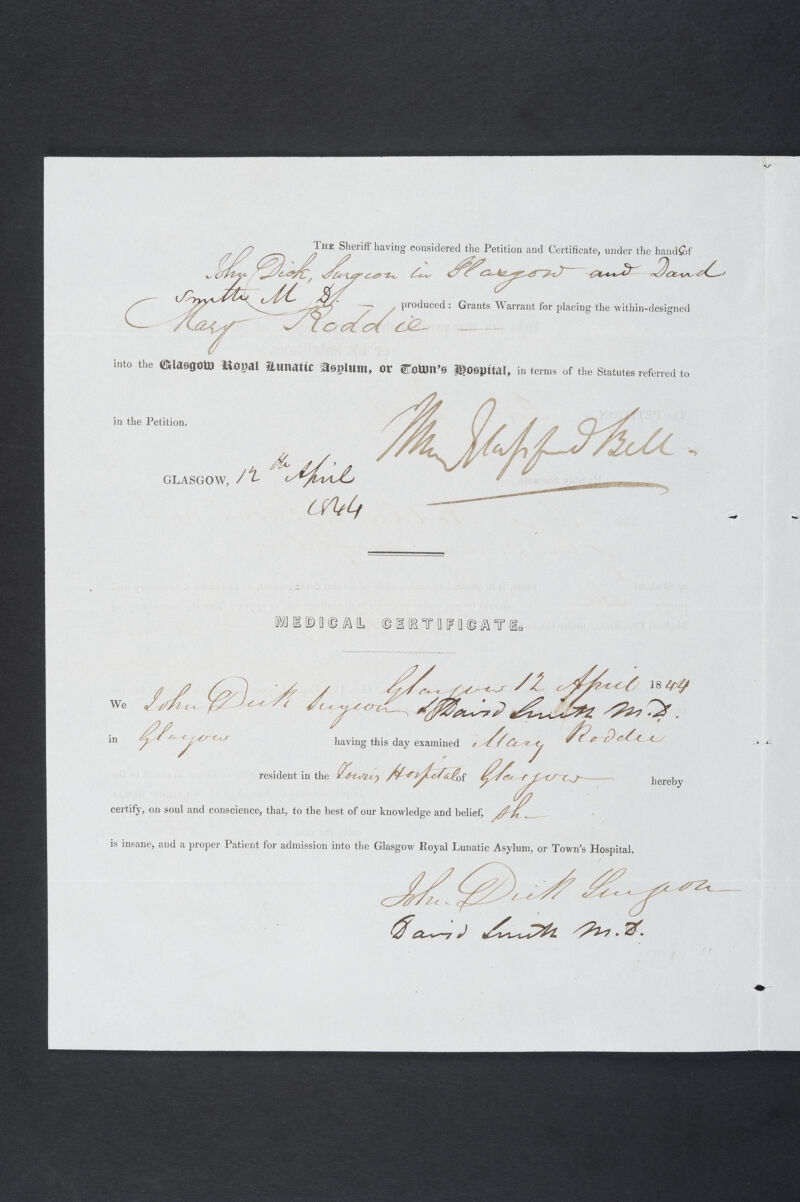 THE Sheriff having considered the Petition and Certificate, under the hands of
John Dick, Surgeon in Glasgow and David
Smith M D.
produced: Grants Warrant for placing the within-designed
Mary Roddie
into the Glasgow Royal Lunatic Asylum, or Town's Hospital, in terms of the Statutes referred to
in the Petition.
Bell
GLASGOW, 12th April
1844
MEDICAL CERTIFICATE.
Glasgow 12 April 1844
We John Dick Surgeon & David Smith M.D.
in Glasgow having this day examined Mary Roddie
resident in the Town's Hospital of Glasgow hereby
certify, on soul and conscience, that, to the best of our knowledge and belief, she
is insane, and a proper Patient for admission into the Glasgow Royal Lunatic Asylum, or Town's Hospital.
John Dick Surgeon
David Smith M.D.